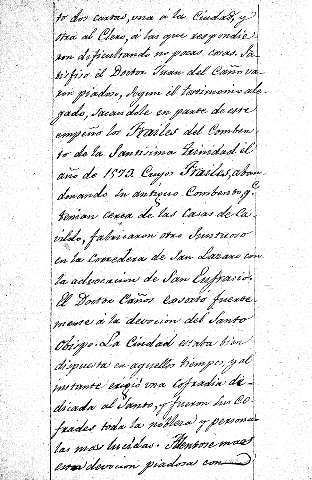 to dos cartas, una á la Ciudad, y
otra al Clero, á las que respondie-
ron dificultando no pocas cosas. Sa-
tisfiso el Doctor Juan del Caño va-
ron piadoso, segun el testimonio ale-
gado, sacandole en parte de este
empeño los Frailes del Comben-
to de la Santisima Trinidad el
año de 1573. Cuyos Frailes, aban
donando su antiguo Combento, q.e
tenian cerca de las casas de Ca-
vildo, fabricaron otro suntuoso
en la Corredera de San Lazaro con
la advocacion de San Eufrasio.
El Doctor Caños exsorto fuerte-
mente á la devocion del Santo
Obispo. La Ciudad estaba bien
dispuesta en aquellos tiempos, y al
instante erigió una Cofradia de-
dicada al Santo, y fueron sus Co-
frades toda la nobleza y persona
las mas lucidas. Mentose mas
esta devocion piadosa con